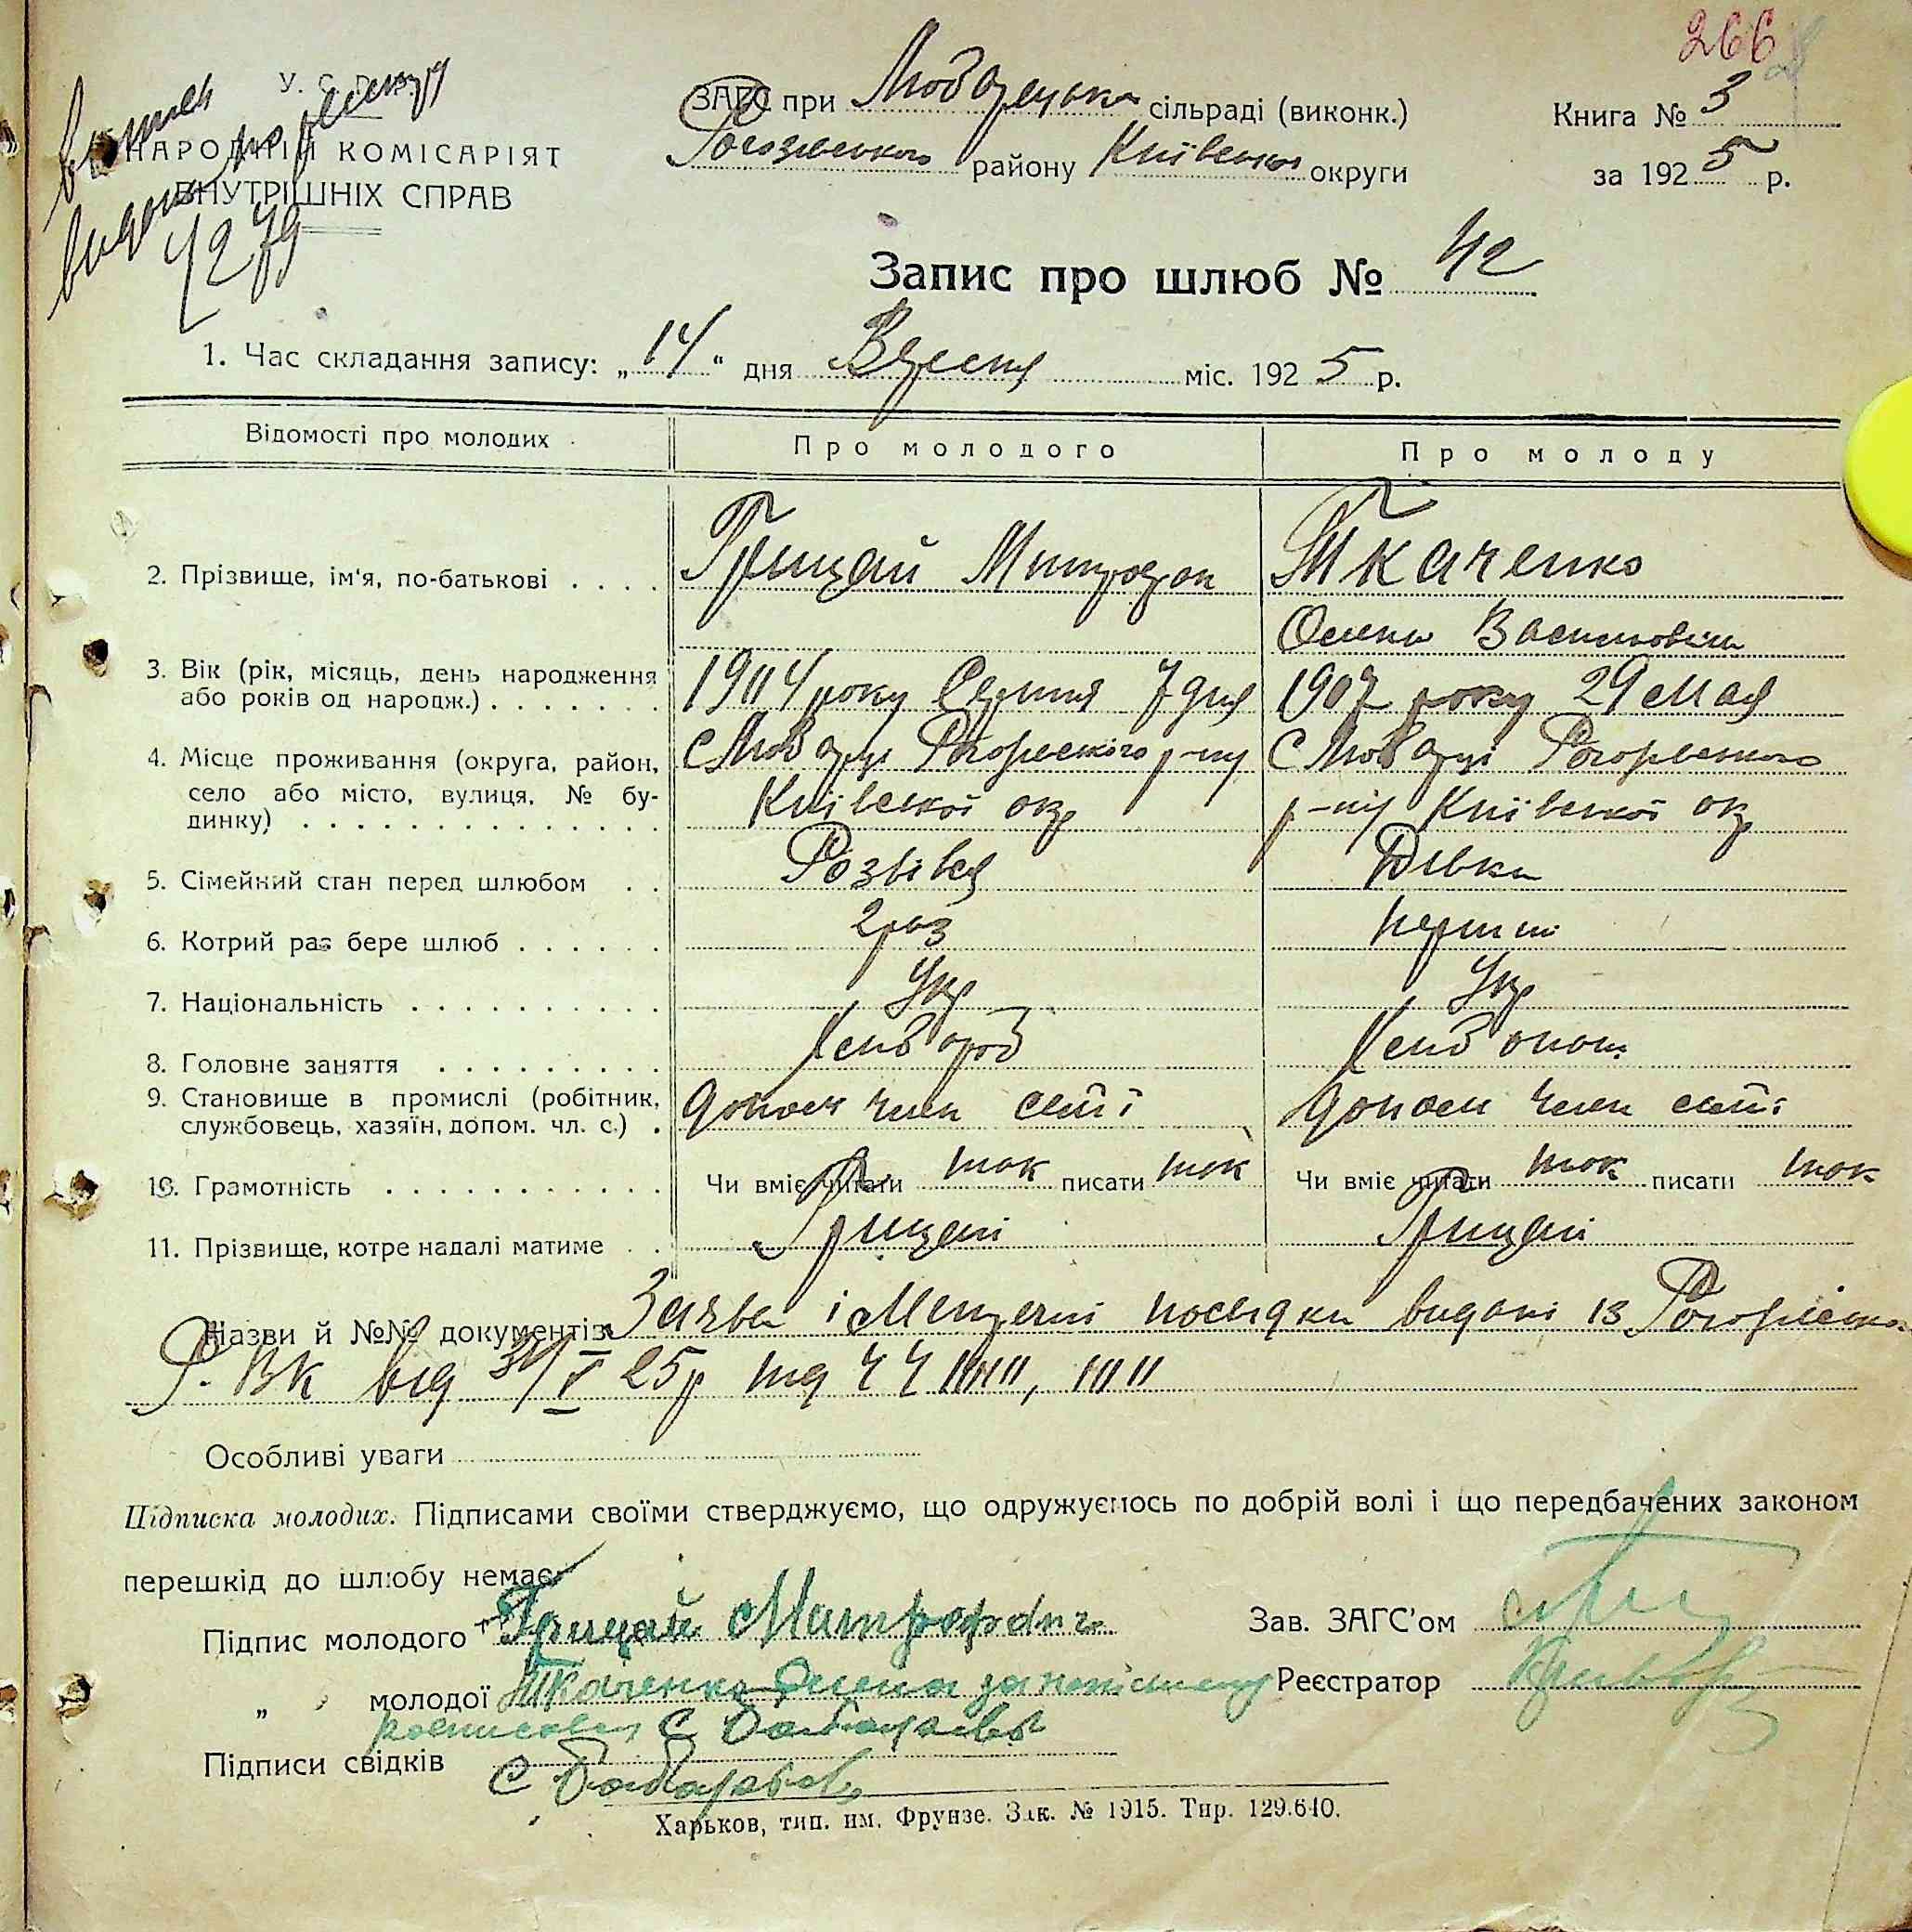 266
У. С. Р. Р.
НАРОДНІЙ КОМІСАРІЯТ
ВНУТРІШНІХ СПРАВ
4279
ЗАГС при Любарецька сільраді (виконк.)
району Київсько округи
Книга № 3
за 1925 р.
Запис про шлюб № 42
1. Час складання запису: „14“ дня Вересня міс. 1925 р.
Відомості про молодих
Про молодого
Про молоду
2. Прізвище, ім'я, по-батькові . . . .
Грицай Митрофан
Ткаченко
Олена Василівна
3. Вік (рік, місяць, день народження
або років од народж.) . . . . . . .
1904 року Серпня 7 дня
1907 року 29 Мая
4. Місце проживання (округа, район,
село або місто, вулиця, № бу-
динку) . . . . . . . . . . . . . . .
с Любарці р-ну
Київської окр
с Любарці
р-ну Київської окр
5. Сімейний стан перед шлюбом . .
Розвівся
Дівка
6. Котрий раз бере шлюб . . . . . .
2 раз
перший
7. Національність . . . . . . . . . .
Укр
Укр
8. Головне заняття . . . . . . . . .
Хліб
Хліб
9. Становище в промислі (робітник,
службовець, хазяїн, допом. чл. с.) .
допом член сімї
допом член сімї
10. Грамотність . . . . . . . . . . . .
Чи вміє читати так писати так
Чи вміє читати так писати так
11. Прізвище, котре надалі матиме . .
Грицай
Грицай
Назви й №№ документів Заява і посвідки видані із
Р. ВК від 25р під
Особливі уваги
Підписка молодих. Підписами своїми стверджуємо, що одружуємось по добрій волі і що передбачених законом
перешкід до шлюбу немає.
Підпис молодого Грицай Митрофан
Зав. ЗАГС'ом
„ молодої Ткаченко Олена
Реєстратор
Підписи свідків
Харьков, тип. им. Фрунзе. Зак. № 1915. Тир. 129.640.